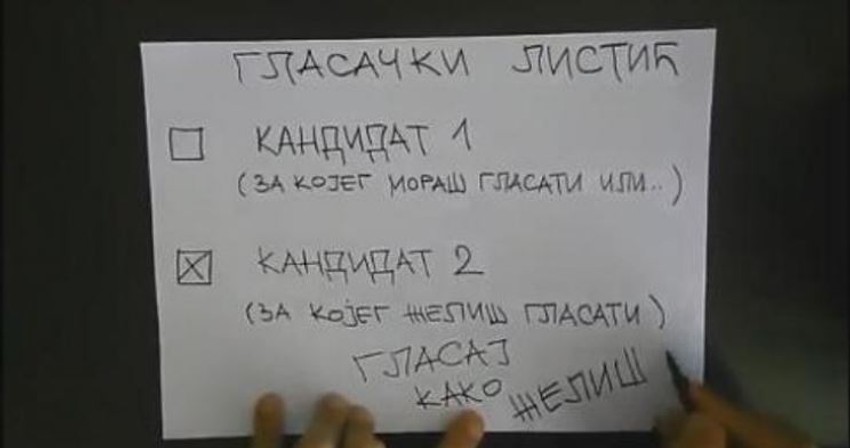 ГЛАСАЧКИ ЛИСТИЋ
КАНДИДАТ 1
(ЗА КОЈЕГ МОРАШ ГЛАСАТИ ИЛИ..)
КАНДИДАТ 2
(ЗА КОЈЕГ ЖЕЛИШ ГЛАСАТИ)
ГЛАСАЈ
КАКО ЖЕЛИШ